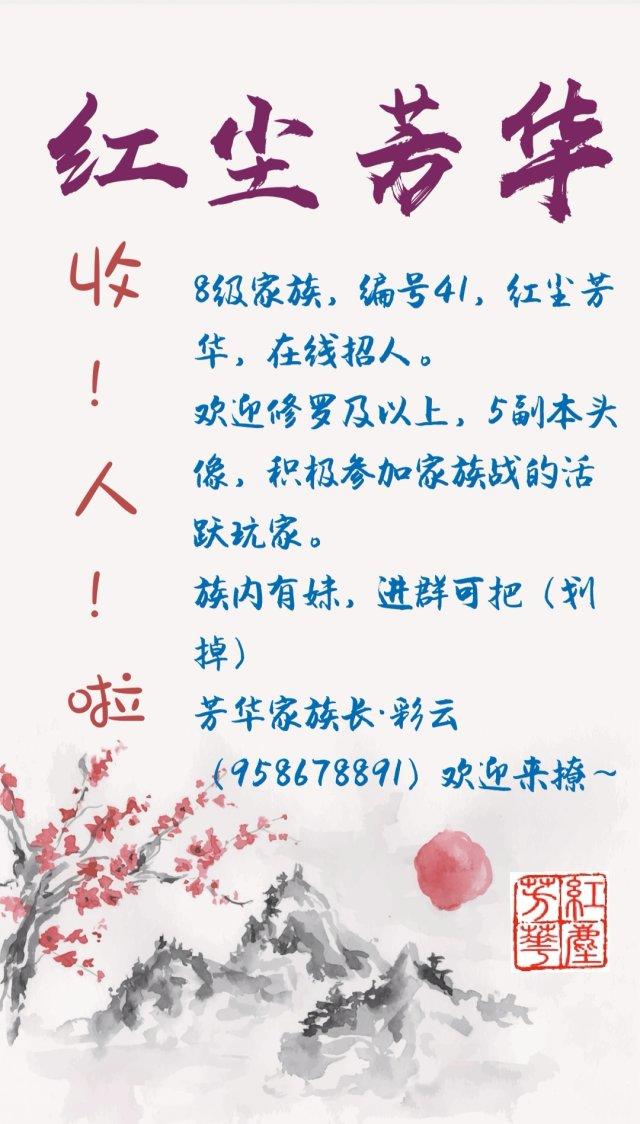 红尘芳华
收！人！啦
8级家族，编号41，红尘芳
华，在线招人。
欢迎修罗及以上，5副本头
像，积极参加家族战的活
跃玩家。
族内有妹，进群可把（划
掉）
芳华家族长·彩云
（958678891）欢迎来撩～
紅塵
芳華